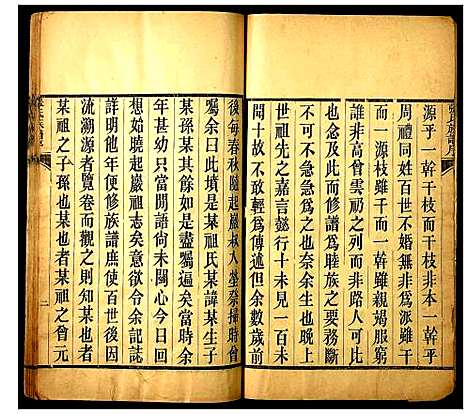 張氏族譜序
源乎一幹千枝而千枝非本一幹乎
周禮同姓百世不婚無非為派
而一源枝雖千而一幹雖親褐服窮
誰非高曾雲礽之列而非路人可比
也念及此而修譜為睦族之要務斷
不可不急急為之也奈余生也晚上
世祖先之嘉言懿行十未見一百未
聞十故不敢輕為傳述但余數歲前
後每春秋隨起巖叔入塋奈掃時曾
囑余曰此墳是某祖氏某諱某生子
孫某某其餘如是盡囑遍矣當時余
年甚幼只當閒語尙未關心今日回
想始曉起巖祖志矣意欲余記誌
詳明他年便修族譜庶使百世後因
流溯源者覽卷而觀之則知某也
某祖之子孫也某也某祖之曾元
二